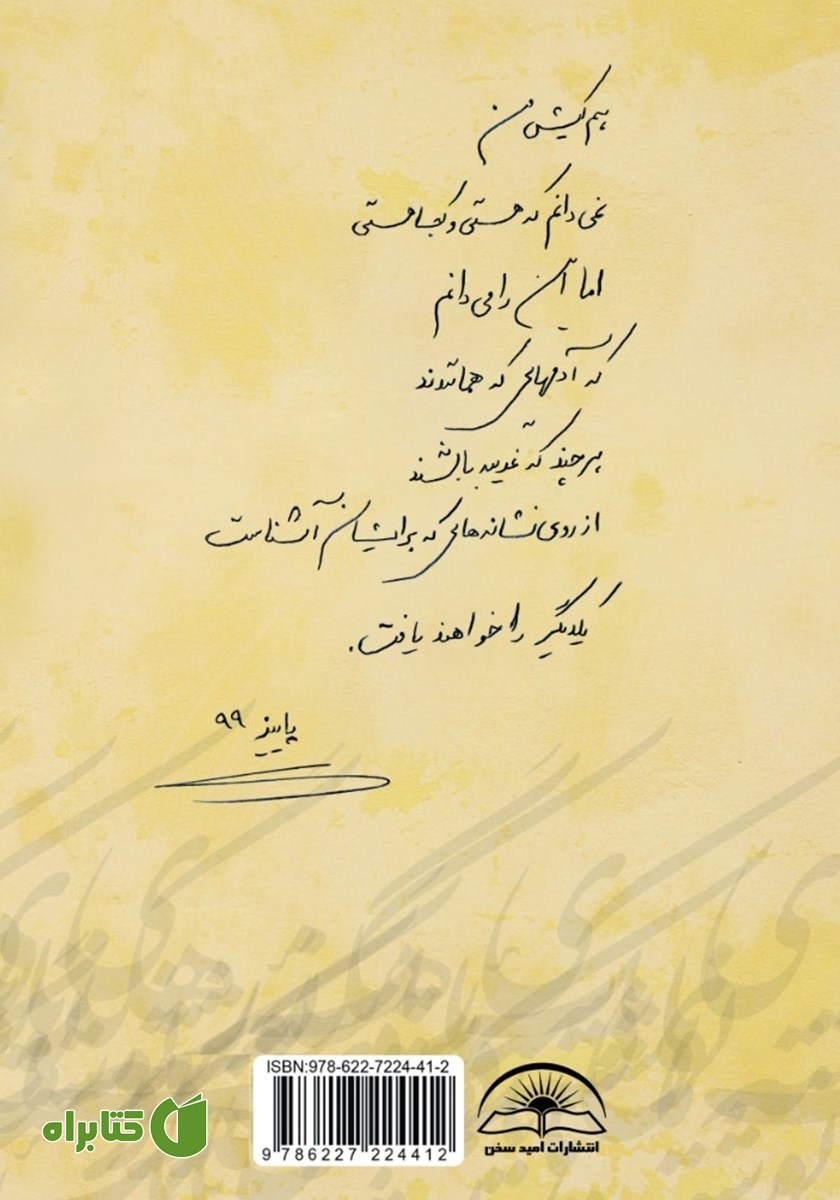 هم کیش من
نمی دانم که هستی و کجا هستی
اما این را می دانم
که آدمهایی که همانندند
هر چند که غریبه باشند
از روی نشانه هایی که برایشان آشناست
یکدیگر را خواهند یافت.
پاییز ۹۹
ISBN:978-622-7224-41-2
9 786227 224412
انتشارات امید سخن
کتابراه